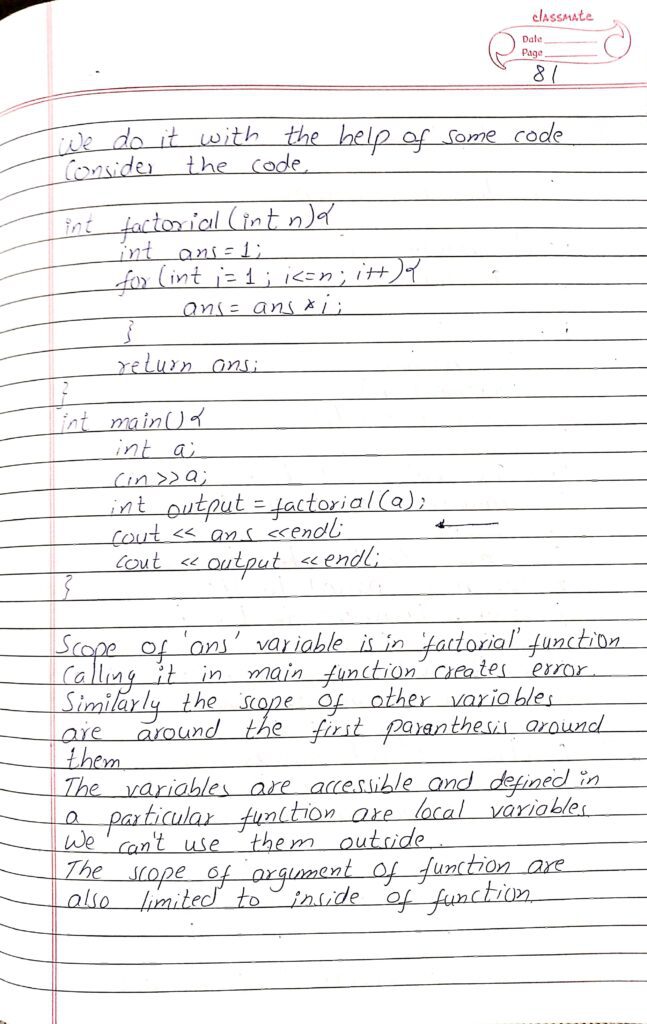 classmate
Date
Page
81
We do it with the help of some code
Consider the code.
int factorial (int n){
int ans = 1;
for (int i = 1 ; i<=n ; i++){
ans = ans * i ;
}
return ans;
}
int main(){
int a;
cin >> a;
int output = factorial(a);
cout << ans <<endl; ←
cout << output <<endl;
}
Scope of 'ans' variable is in 'factorial' function
Calling it in main function creates error.
Similarly the scope of other variables
are around the first paranthesis around
them
The variables are accessible and defined in
a particular function are local variables
We can't use them outside.
The scope of argument of function are
also limited to inside of function